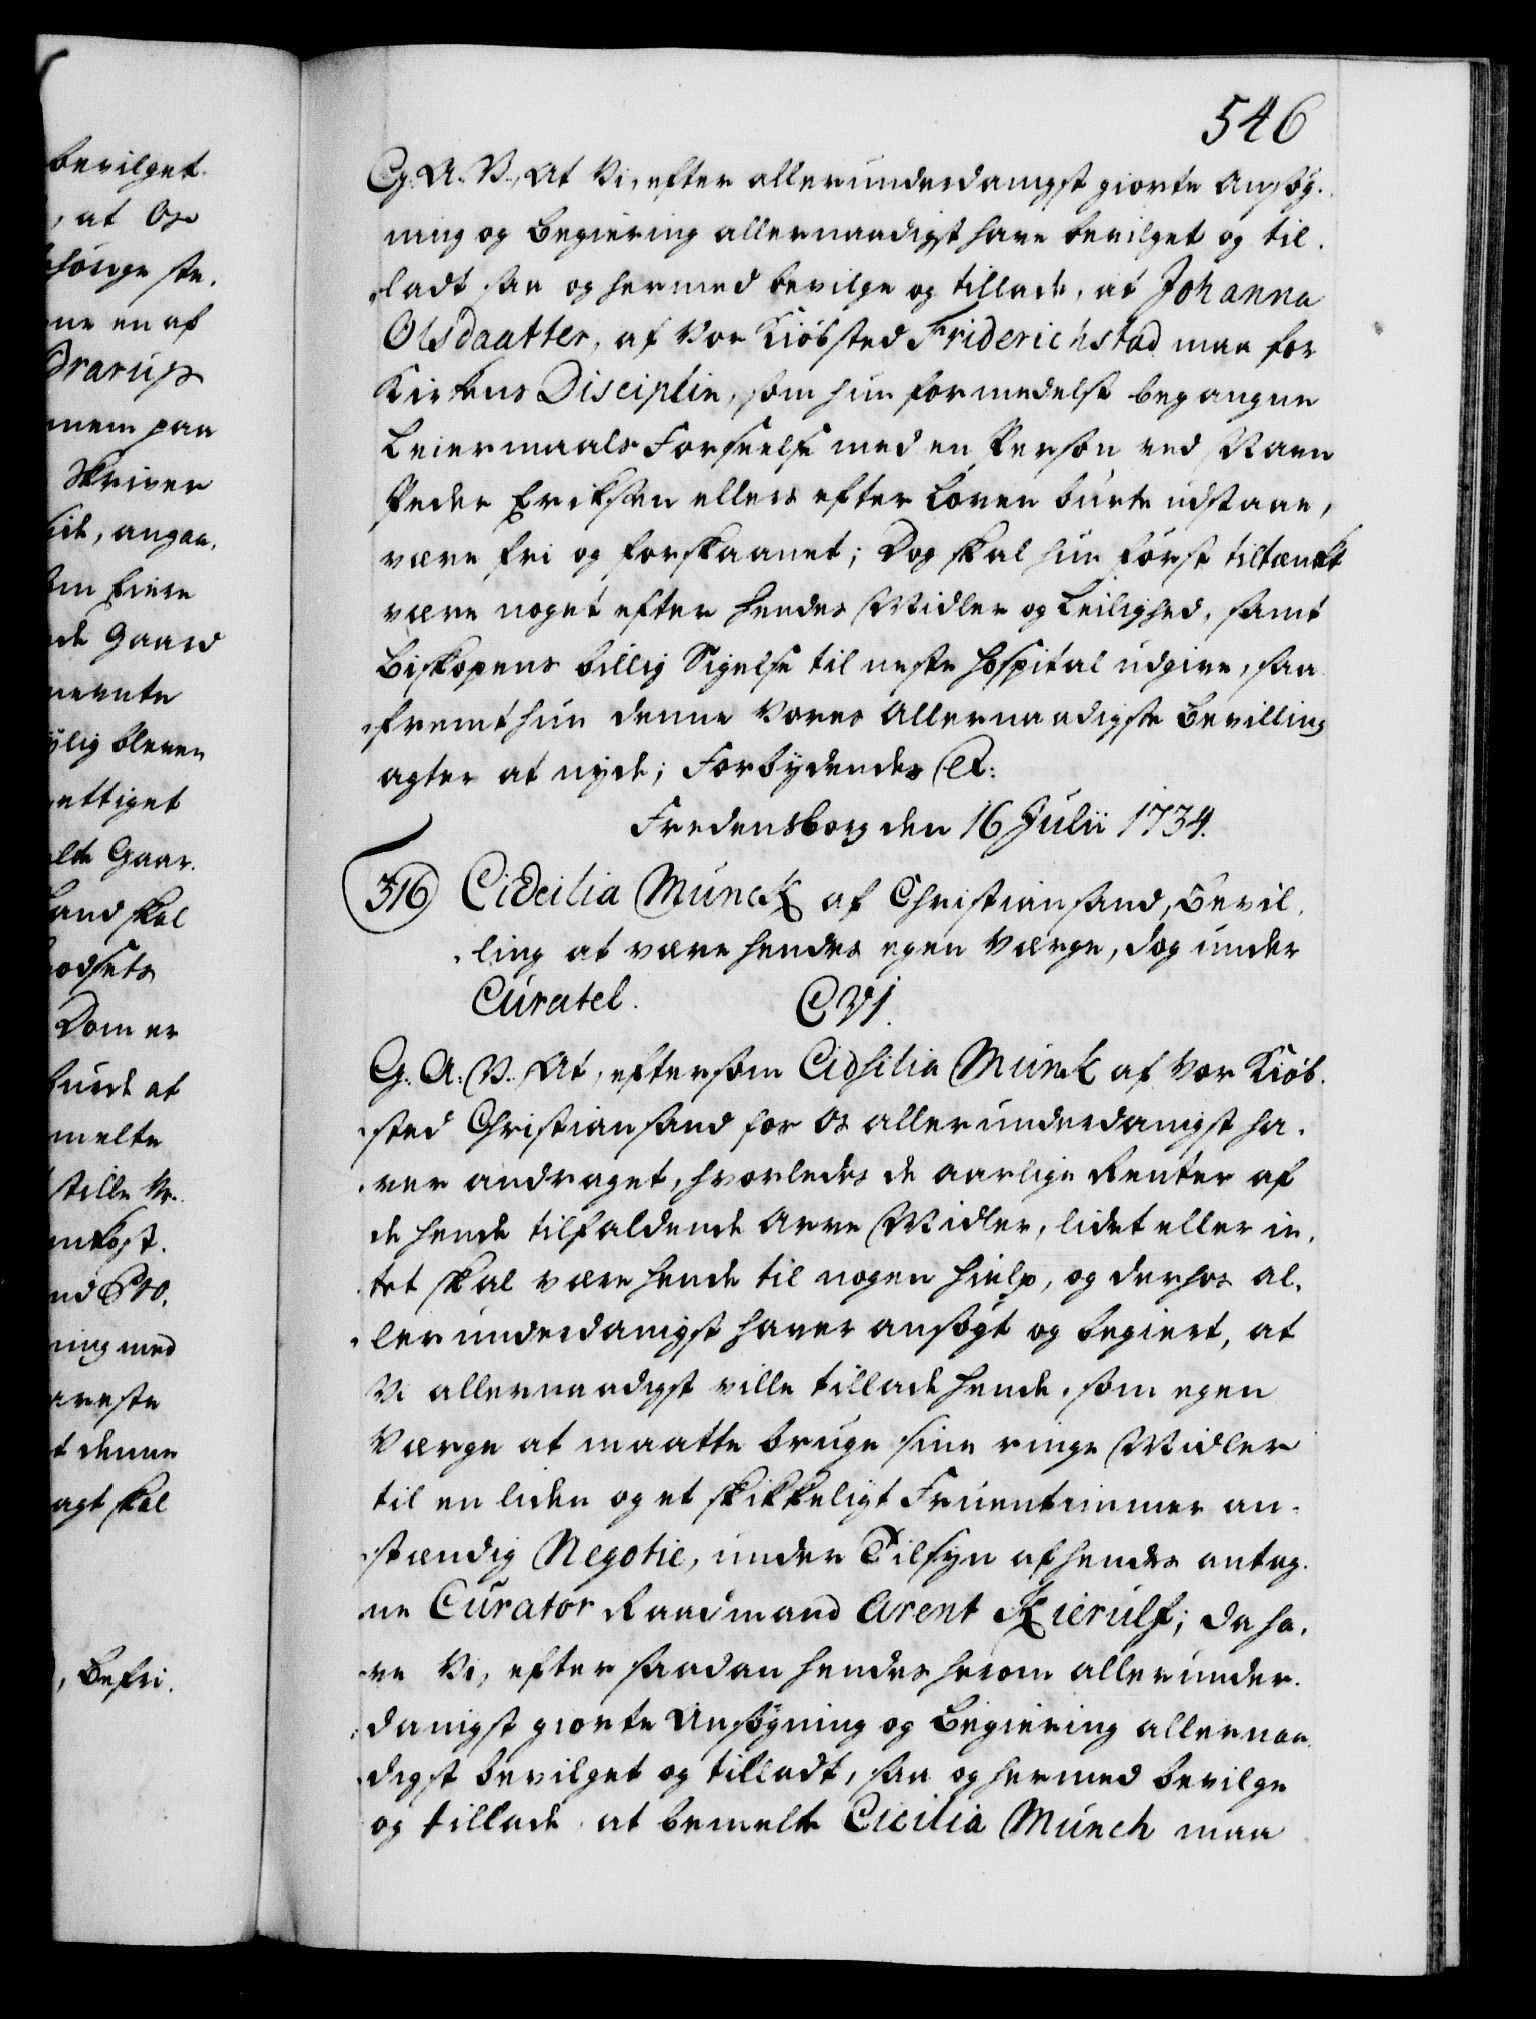 bevilget
, at Os
höuge ste.
ene en af
Drarups
nnem paa
Skriver
Kide, angaa,
Sin Eiere
nde Gaard
nevnte
ÿlig bleven
ettiget
elte Gaar.
Land skal
Godsets
Dom er
burde at
melte
stille Ve.
mkost.
nd Sto.
ning med
areste
t denne
agt skal
, Befri.
546
G: A: V., At Vi, efter allerunderdanigst giorte Ansøg.
ning og Begiering allernaadigst have bevilget og til.
ladt saa og hermed bevilge og tillade, at Johanna
Olsdaatter, af Vor Kiöbsted Friderichstad maa for
Kirkens Disciplin, som hun formedelst begangne
Leiermaals Forseelse med en Person ved Navn
Peder Eriksen ellers efter Loven burte udstaae,
være fri og forskaanet; Dog skal hun først tiltænkt
være noget efter hendes Midler og Leilighed, samt
Biskopens billig Sigelse til neste Hospital udgive, saa
fremt hun denne Vores Allernaadigste Bevilling
agter at nyde; Forbydendes &c:
Fredensborg den 16 Julii 1734.
316 Cidcilia Munck af Christiansand, Bevil.
ling at være hendes egen Værge, dog under
Curatel. C VI.
G: A: V., At, eftersom Cidsilia Munck af Vor Kiöb.
sted Christiansand for Os allerunderdanigst ha.
ver andraget, hvorledes de aarlige Renter af
de hende tilfaldende Arve Midler, lidet eller in.
tet skal være hende til nogen Hielp, og derhos al.
lerunderdanigst haver ansøgt og begiert, at
Vi allernaadigst ville tillade hende, som egen
Værge at maatte bruge sine ringe Midler
til en liden og et skikkeligt Fruentimmer an.
stændig Negotie, under Tilsyn af hendes antag.
ne Curator Raadmand Arent Kierulf; da ha.
ve Vi, efter saadan hendes herom allerunder.
danigst giorte Ansøgning og Begiering allernaa.
digst bevilget og tilladt, saa og hermed bevilge
og tillade, at bemelte Cicilia Munch maa